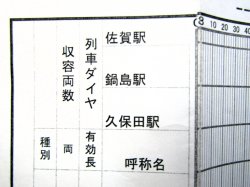 佐賀駅
鍋島駅
久保田駅
呼称名
列車ダイヤ
有効長
収容両数
両
種別
8
10 20 30 40